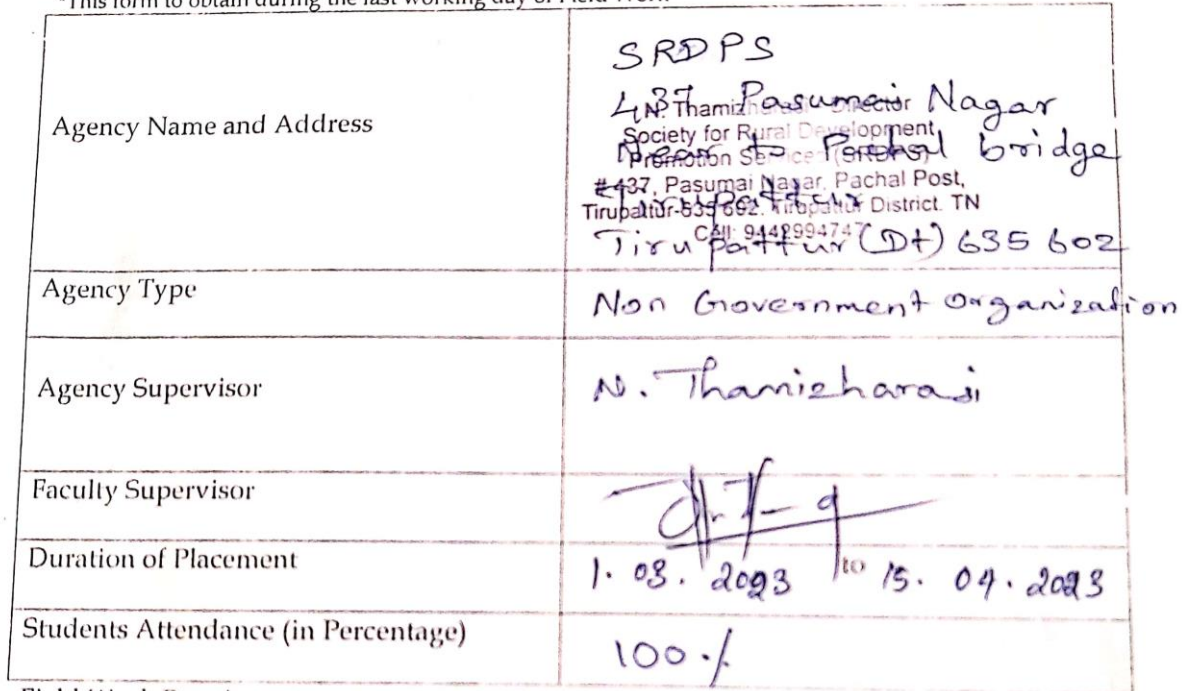 *This form to obtain during the last working day of Field Work
Agency Name and Address
SRDPS
437 Pasumai Nagar
Near to Pachal bridge
Tirupattur
Tirupattur (Dt) 635 602
N. Thamizharasi Director
Society for Rural Development
Promotion Services (SRDPS)
#437, Pasumai Nagar, Pachal Post,
Tirupattur-635 602. Tirupattur District. TN
Call: 9442994747
Agency Type
Non Government Organization
Agency Supervisor
N. Thamizharasi
Faculty Supervisor
Duration of Placement
1. 03. 2023 to 15. 04. 2023
Students Attendance (in Percentage)
100 %